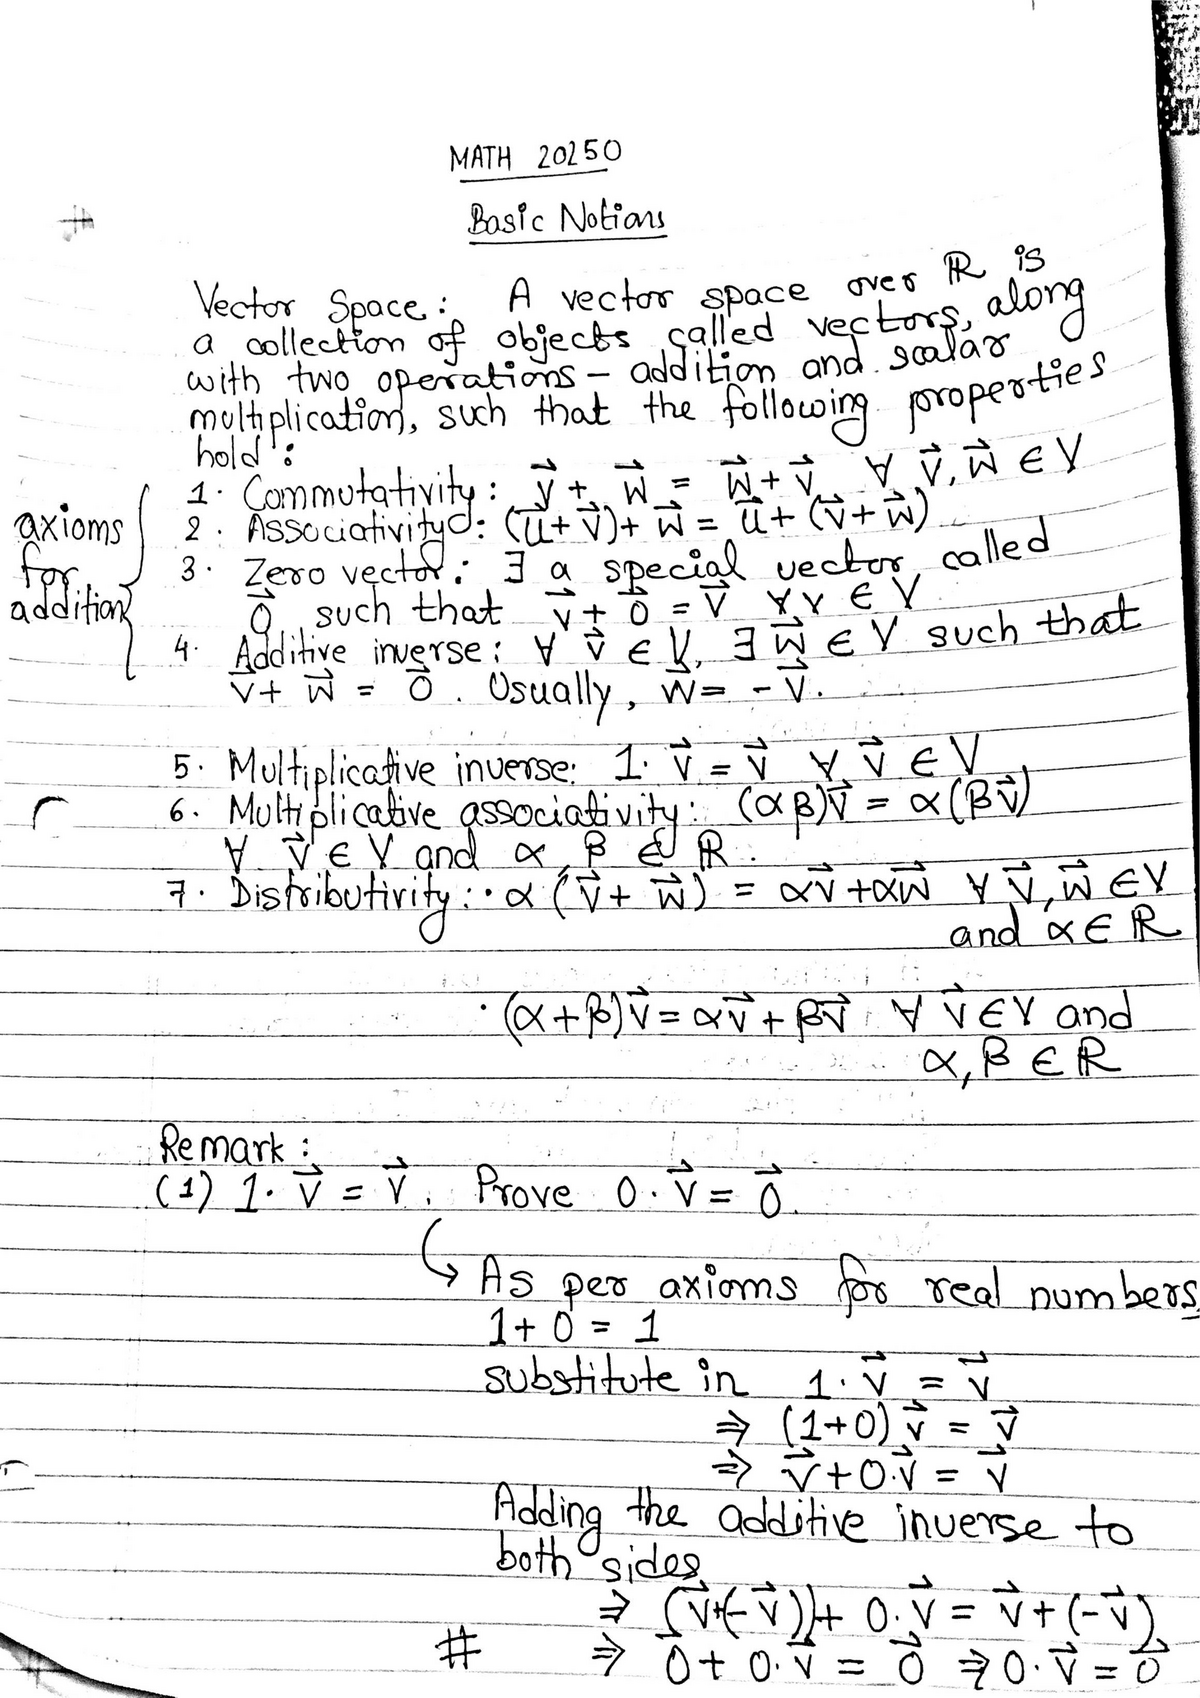 MATH 20250
Basic Notions
Vector Space: A vector space over ℝ is
a collection of objects called vectors, along
with two operations – addition and scalar
multiplication, such that the following properties
hold:
axioms for addition
1. Commutativity: v⃗ + w⃗ = w⃗ + v⃗ ∀ v⃗, w⃗ ∈ V
2. Associativity: (u⃗ + v⃗) + w⃗ = u⃗ + (v⃗ + w⃗)
3. Zero vector: ∃ a special vector called
0⃗ such that v⃗ + 0⃗ = v⃗ ∀ v ∈ V
4. Additive inverse: ∀ v⃗ ∈ V, ∃ w⃗ ∈ V such that
v⃗ + w⃗ = 0⃗. Usually, w⃗ = - v⃗.
5. Multiplicative inverse: 1. v⃗ = v⃗ ∀ v⃗ ∈ V
6. Multiplicative associativity: (αβ)v⃗ = α(βv⃗)
∀ v⃗ ∈ V and α, β ∈ ℝ.
7. Distributivity: • α (v⃗ + w⃗) = αv⃗ + αw⃗ ∀ v⃗, w⃗ ∈ V
and α ∈ ℝ
• (α+β)v⃗ = αv⃗ + βv⃗ ∀ v⃗ ∈ V and
α, β ∈ ℝ
Remark:
(1) 1. v⃗ = v⃗. Prove 0. v⃗ = 0⃗.
↳ As per axioms for real numbers,
1 + 0 = 1
substitute in 1. v⃗ = v⃗
⇒ (1+0) v⃗ = v⃗
⇒ v⃗ + 0.v⃗ = v⃗
Adding the additive inverse to
both sides
⇒ (v⃗+(-v⃗)) + 0.v⃗ = v⃗ + (-v⃗)
# ⇒ 0⃗ + 0.v⃗ = 0⃗ ⇒ 0.v⃗ = 0⃗